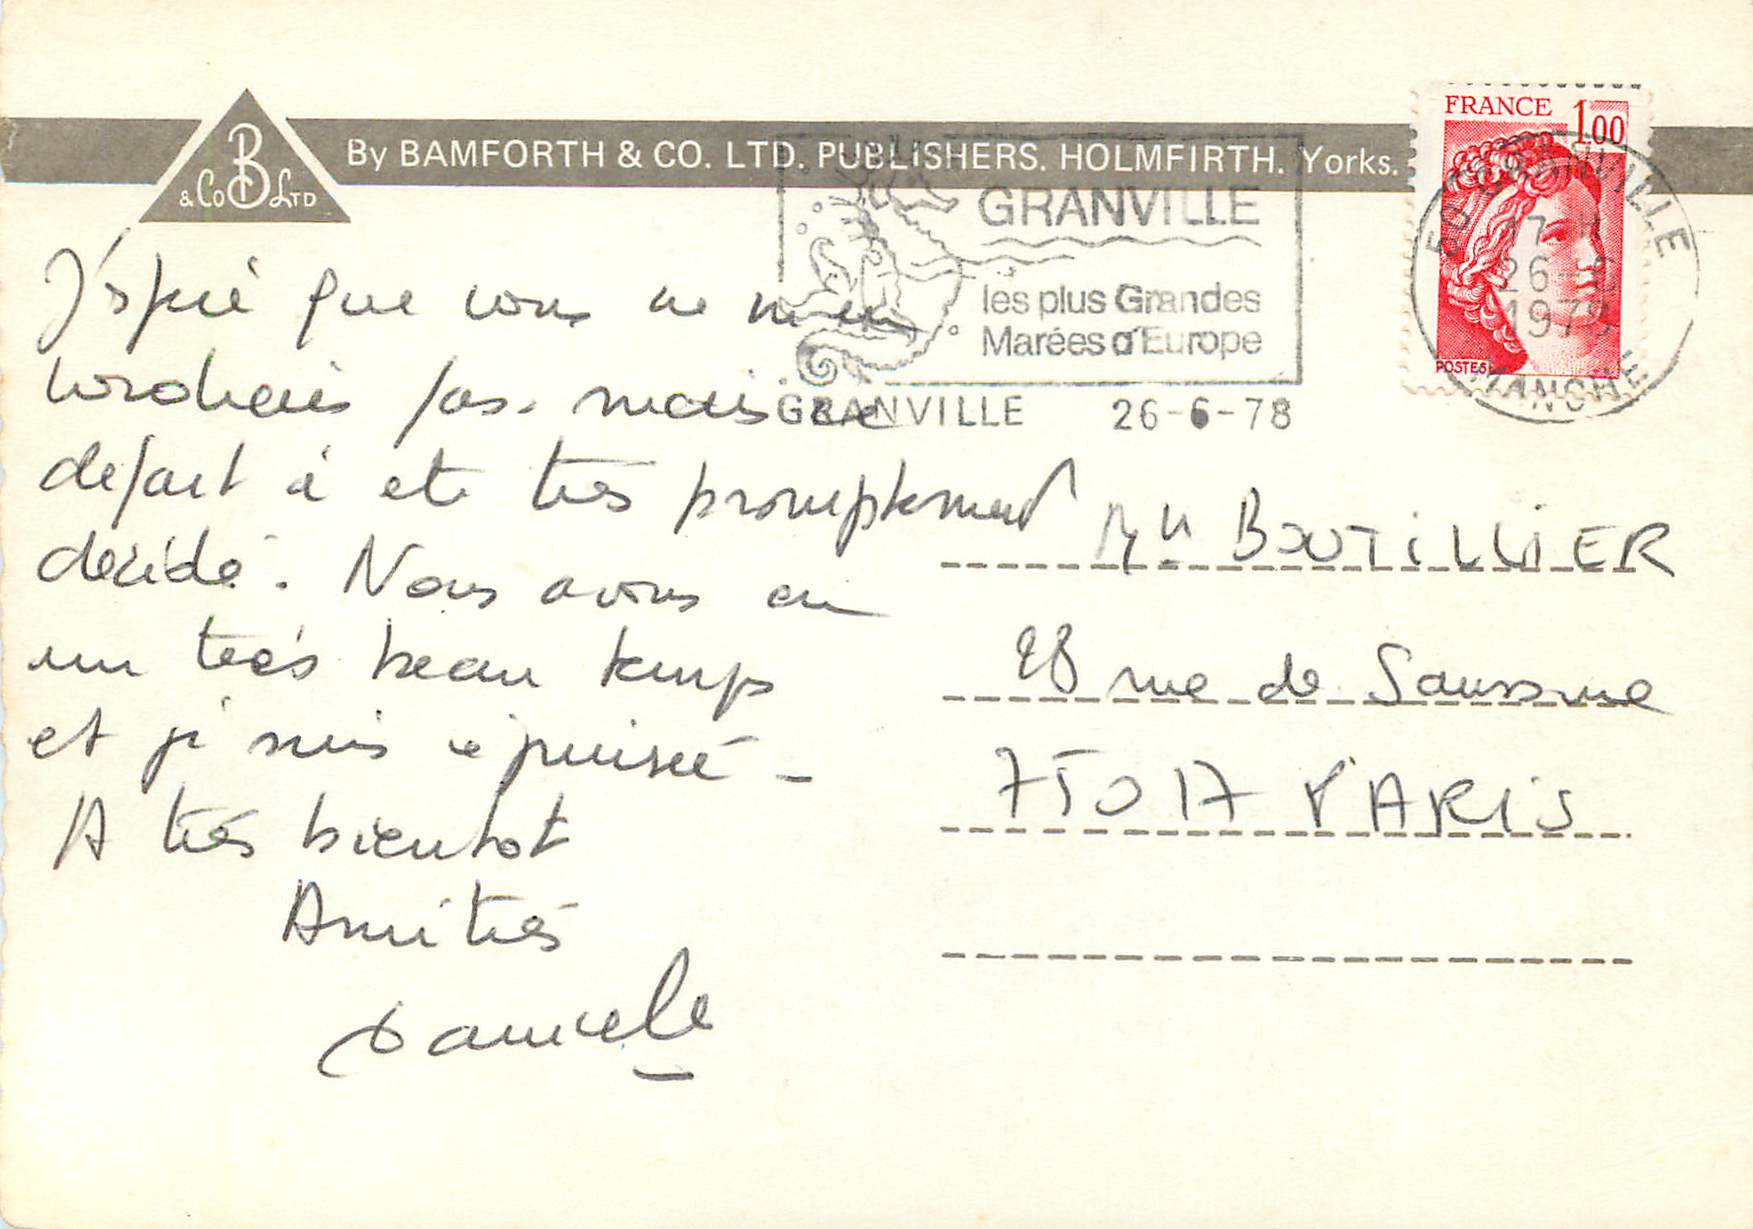 By BAMFORTH & CO. LTD. PUBLISHERS. HOLMFIRTH. Yorks.
B
& Co LTD
FRANCE 1,00
POSTES
50 GRANVILLE
17 H
26-6
1978
MANCHE
GRANVILLE
les plus Grandes
Marées d'Europe
GRANVILLE 26-6-78
J'espère que vous ne m'en
voudrais pas. mais ce
depart à été très promptement
décidé. Nous avons eu
un très beau temps
et je suis épuisée -
A très bientot
Amitiés
Daniele
BOUTILLIER
28 rue de Saussure
75017 PARIS